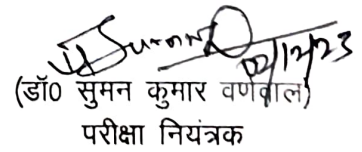 02/12/23
(डॉ0 सुमन कुमार वर्णवाल)
परीक्षा नियंत्रक